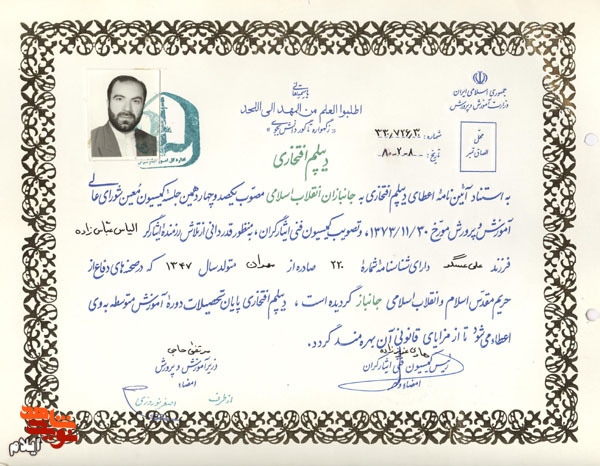 جمهوری اسلامی ایران
وزارت آموزش و پرورش
محل
الصاق تمبر
شماره: ۳۳،۷۲۶،۳
تاریخ: ۸۰-۲-۸
باسمه تعالی
اطلبوا العلم من المهد الی اللحد
« ز گهواره تا گور دانش بجوی »
دیپلم افتخاری
به استناد آئین نامه اعطای دیپلم افتخاری به جانبازان انقلاب اسلامی مصوب یکصد و چهاردهمین جلسه کمیسیون معین شورای عالی
آموزش و پرورش مورخ ۱۳۷۳/۱۱/۳۰، و تصویب کمیسیون فنی ایثارگران، به منظور قدردانی از تلاش رزمنده ایثارگر الیاس عباس زاده
فرزند علی عسگر دارای شناسنامه شماره ۲۲۰ صادره از مهران متولد سال ۱۳۴۷ که در صحنه های دفاع از
حریم مقدس اسلام و انقلاب اسلامی جانباز گردیده است ، دیپلم افتخاری پایان تحصیلات دوره آموزش متوسطه به وی
اعطاء می شود تا از مزایای قانونی آن بهره مند گردد.
رئیس کمیسیون فنی ایثارگران
امضاء
مرتضی حاجی
وزیر آموزش و پرورش
امضاء
از طرف
اصغر نوروزی
شاهد
نوید
ایلام